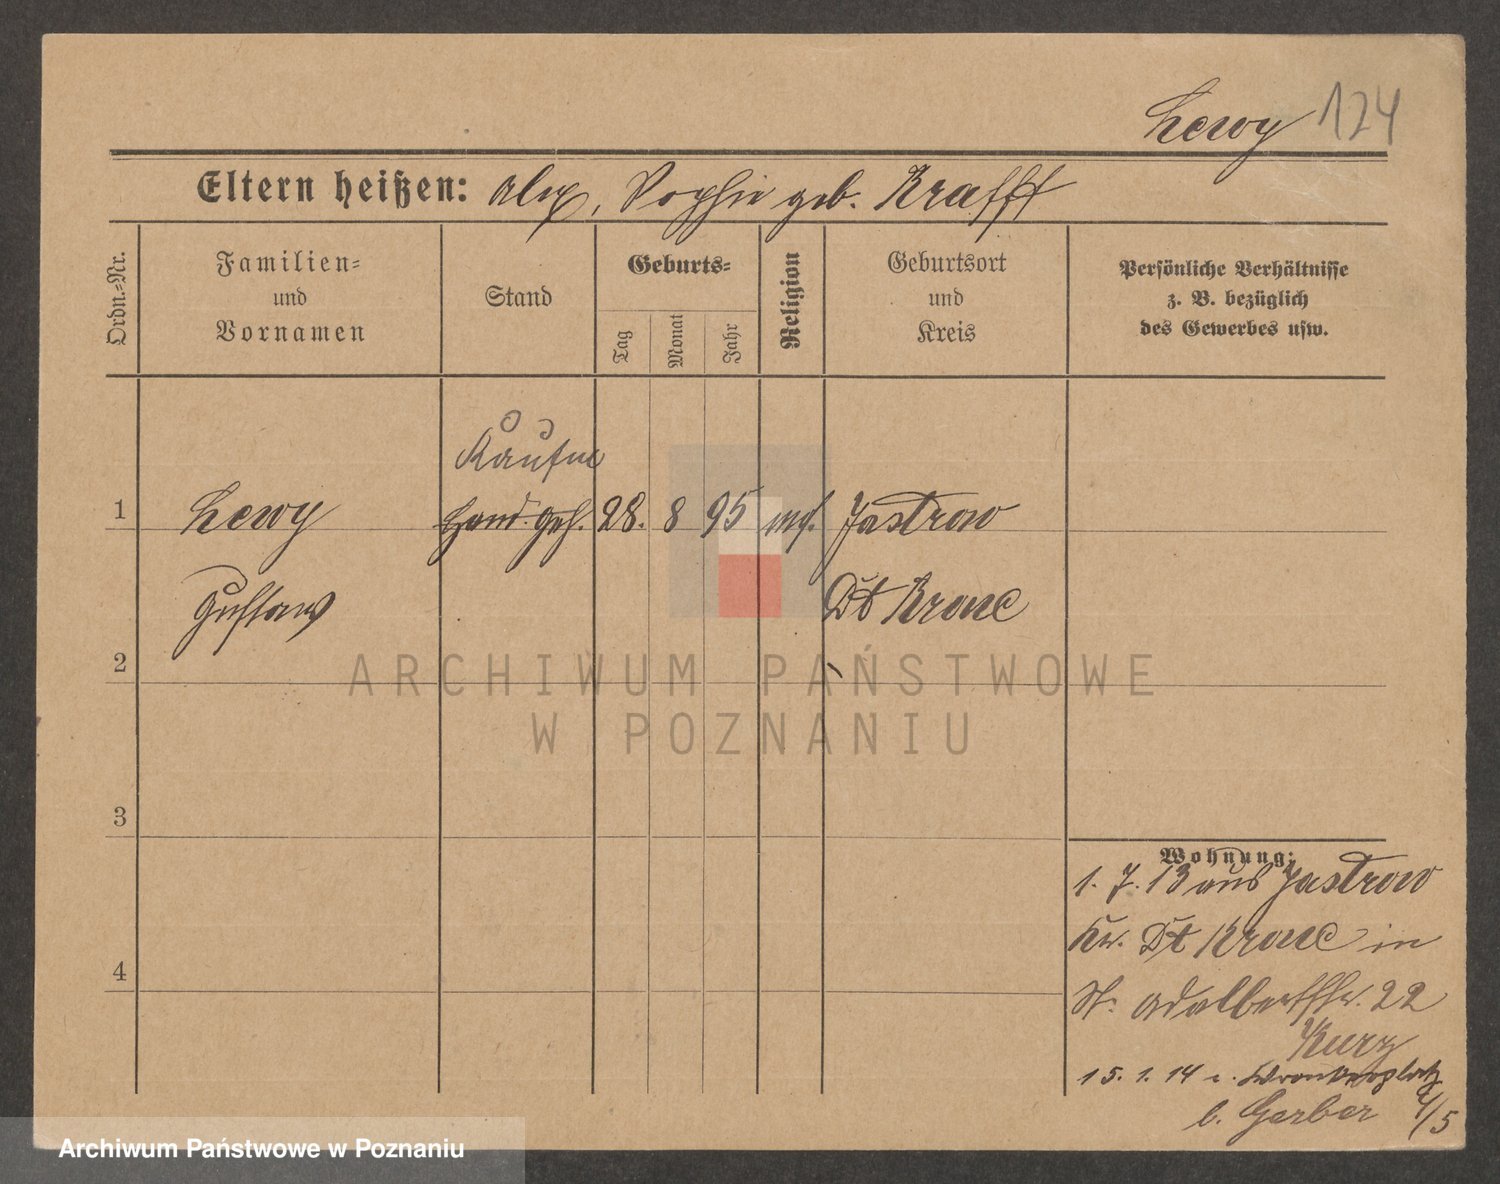 Lewy 124
Eltern heißen: Alex, Sophie geb. Krafft
Ordn.=Nr.
Familien=
und
Vornamen
Stand
Geburts=
Tag
Monat
Jahr
Religion
Geburtsort
und
Kreis
Persönliche Verhältnisse
z. B. bezüglich
des Gewerbes usw.
Kaufm
1 Lewy Hand. geh. 28. 8 95 mos. Jastrow
Gustaw Dt Krone
2
ARCHIWUM PAŃSTWOWE
W POZNANIU
3
Wohnung:
1. 7. 13 aus Jastrow
Kr. Dt Krone in
4
St. Adalbertstr. 22
Kurz
15. 1. 14 n. Wronkerplatz
b. Gerber 4/5
Archiwum Państwowe w Poznaniu